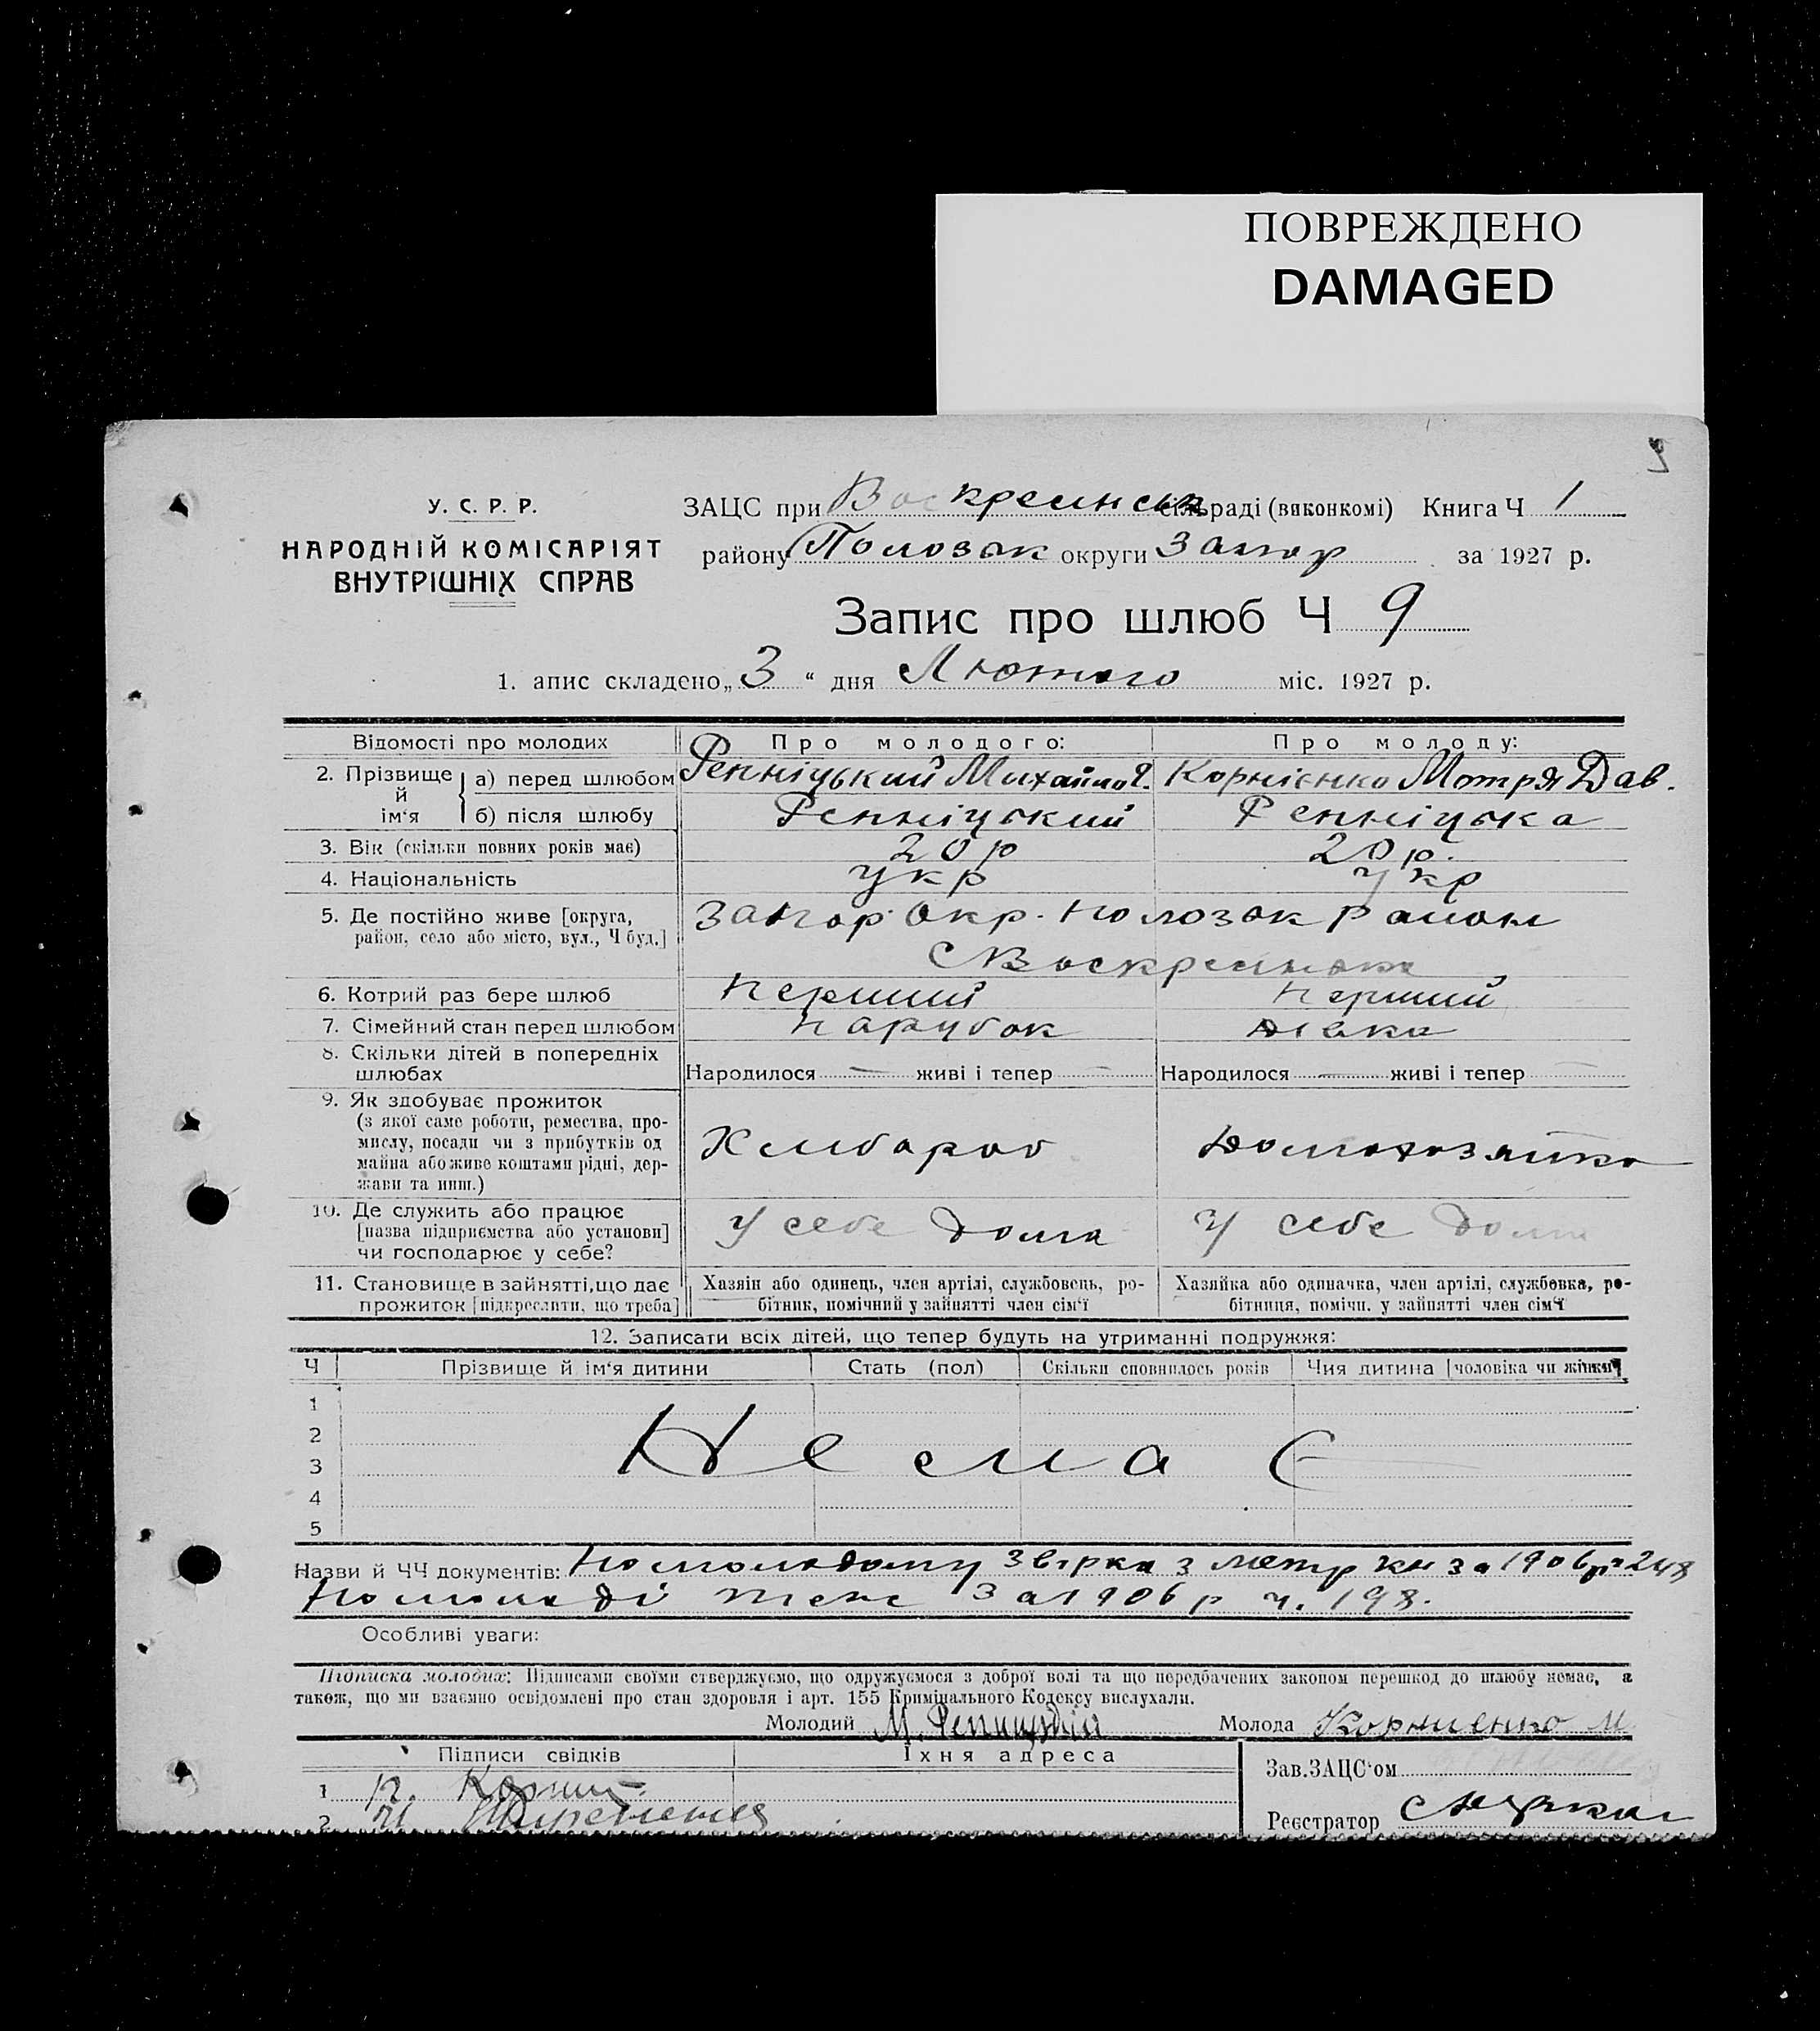 ПОВРЕЖДЕНО
DAMAGED
9
У. С. Р. Р.
НАРОДНІЙ КОМІСАРІЯТ
ВНУТРІШНІХ СПРАВ
ЗАЦС при Воскресинськ сільраді (виконкомі) Книга Ч 1
району Полозок округи Запор за 1927 р.
Запис про шлюб Ч 9
1. апис складено „ 3 “ дня Лютого міс. 1927 р.
Відомості про молодих Про молодого: Про молоду:
2. Прізвище й ім'я а) перед шлюбом Репніцький Михайло Корнієнко Мотря Дав.
б) після шлюбу Репніцький Репніцька
3. Вік (скільки повних років має) 20 р 20 р.
4. Національність укр укр
5. Де постійно живе [округа, Запор. Окр. Полозок район
район, село або місто, вул., Ч буд.] с Воскресинка
6. Котрий раз бере шлюб перший перший
7. Сімейний стан перед шлюбом парубок дівка
8. Скільки дітей в попередніх
шлюбах Народилося — живі і тепер — Народилося — живі і тепер —
9. Як здобуває прожиток
(з якої саме роботи, ремества, про-
мислу, посади чи з прибутків од Хлібороб Домохозяйка
майна або живе коштами рідні, дер-
жави та инш.)
10. Де служить або працює
[назва підприємства або установи] У себе дома У себе дома
чи господарює у себе?
11. Становище в зайнятті, що дає Хазяїн або одинець, член артілі, службовець, ро- Хазяйка або одиначка, член артілі, службовка, ро-
прожиток [підкреслити, що треба] бітник, помічний у зайнятті член сім'ї бітниця, помічн. у зайнятті член сім'ї
12. Записати всіх дітей, що тепер будуть на утриманні подружжя:
Ч Прізвище й ім'я дитини Стать (пол) Скільки сповнилось років Чия дитина [чоловіка чи жінки]
1
2
3 Немає
4
5
Назви й ЧЧ документів: По молодому звірка з метр кн за 1906 р ч 248
По молоді теж за 1906 р ч. 198.
Особливі уваги:
Підписка молодих: Підписами своїми стверджуємо, що одружуємося з доброї волі та що передбачених законом перешкод до шлюбу немає, а
також, що ми взаємно освідомлені про стан здоровля і арт. 155 Кримінального Кодексу вислухали.
Молодий М. Репницький Молода Корниенко М
Підписи свідків Їхня адреса Зав. ЗАЦС'ом
1
2 Реєстратор